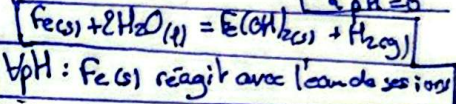 à pH=0
Fe(s) + 2H2O(l) = Fe(OH)2(s) + H2(g)
∀pH : Fe(s) réagit avec l'eau de ses ions